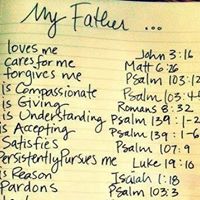 My Father ...
loves me John 3:16
cares for me Matt 6:26
forgives me Psalm 103:12
is Compassionate Psalm 103:4
is Giving Romans 8:32
is Understanding Psalm 139:1-2
is Accepting Psalm 139:1-6
Satisfies Psalm 107:9
Persistently Pursues me Luke 19:10
is Reason Isaiah 1:18
Pardons Psalm 103:3